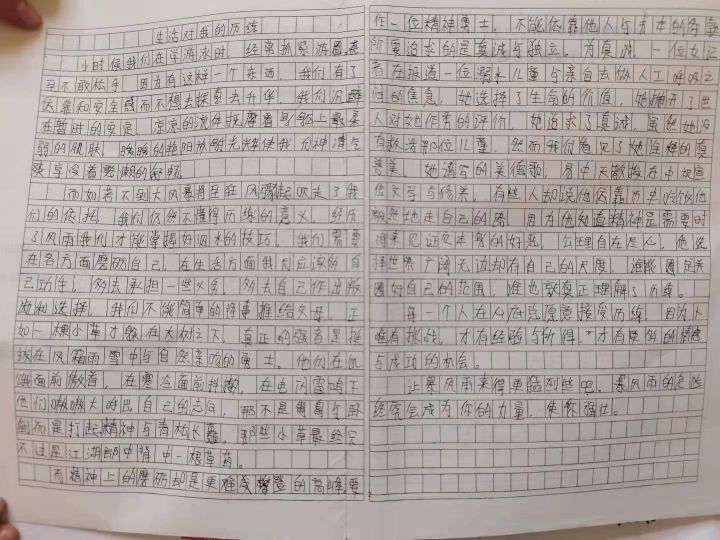 生活对我的历练
小时侯我们在学游泳时，经常抓紧游圈甚
至不敢松手，因为有这样一个东西，我们有了
依靠和安全感而不想去探索去升华，我们沉醉
在暂时的安逸，凉凉的流体抚摩着身躯上最柔
弱的肌肤，暖暖的艳阳放射光芒使我分神清气
爽享受着懒懒的舒服。
而如若不到大风暴将至狂风骤起吹走了我
们的依托，我们仍然不懂得历练的意义，经历
了风雨我们才能掌握好泅水的技巧，我们需要
在各方面磨砺自己，在生活方面我们应该多自
己动手，多去承担一些义务，多去自己作出散
发和选择，我们不能简单的将事推给父母，正
如一棵小草才躲在大树之下，真正的强者是挺
拔在风霜雨雪中与自然亲吻的勇士。他们在饥
饿面前傲首，在寒冷面前抖擞，在电闪雷鸣下
他们嗷嗷大呼出自己的志向，那不是匍匐与卧
倒而是打起精神与青松长矗。那些小草最终只
不过是江湖郎中背中一根草药。
而精神上的磨砺却是更难攀登的高峰，要
作一位精神勇士，不能依靠他人与书本的
所要追求的是真诚与独立。为真诚，一位女记
者在报道一位溺水儿童与亲自去做人工呼吸之
间的焦急，她选择了生命的价值，她抛开了世
人对她作秀的评价，她追求了真诚，虽然她没
有救活那位儿童，然而我们看见了她诠释的真
善美，她谱写的美德歌；易中天散报在中
传文学与修养，有些人却说他依靠历史吃饭他
毅然地走自己的路，因为他知道精神是需要时
间来见证见本身的好恶，公理自在是人，他说
择世界广阔无边却有自己的尺度，谁能圈足关
圈好自己的范围，谁也就真正理解了历练。
每一个人在人心底愿意接受历练，因为人
唯有挑战，才有经验与所得，才有更多的情感
与成功的机会。
让暴风雨来得更猛烈些吧，暴风雨的危险
终究会成为你的力量，使你强壮。